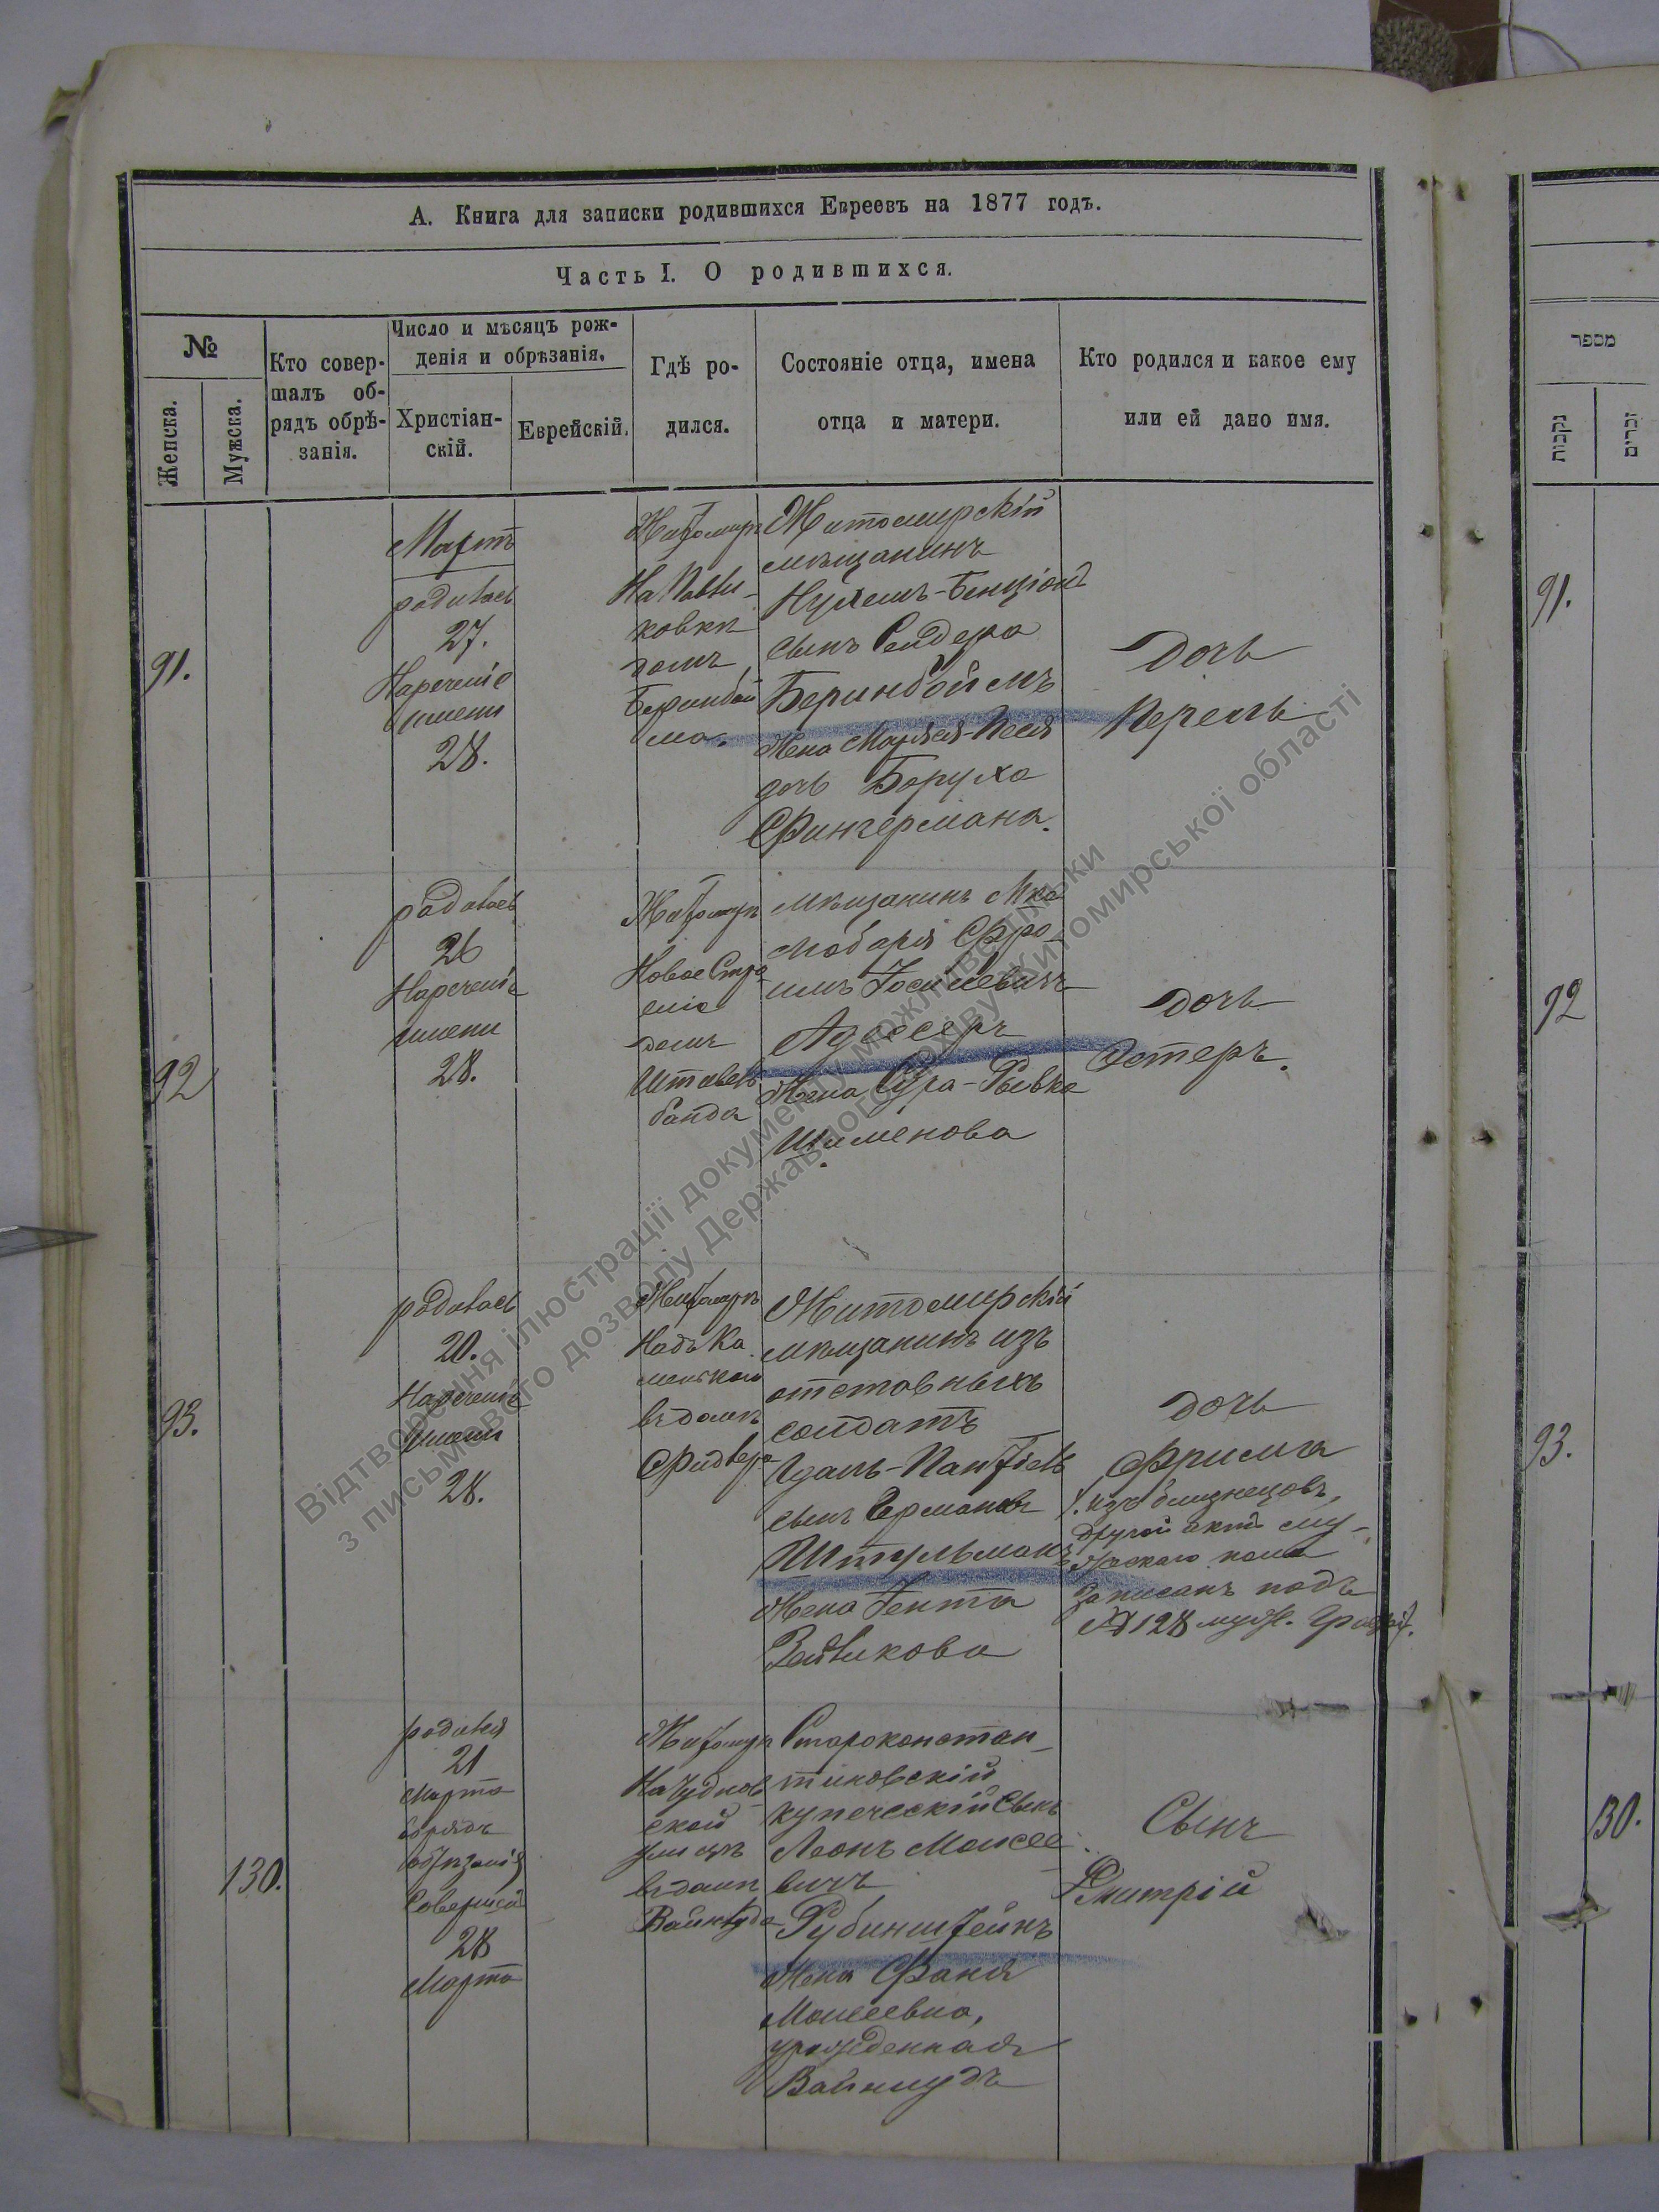 А. Книга для записки родившихся Евреевъ на 1877 годъ.
Часть I. О родившихся.
№
Женска.
Мужска.
Кто совер-
шалъ об-
рядъ обрѣ-
занія.
Число и мѣсяцъ рож-
денія и обрѣзанія.
Христіан-
скій.
Еврейскій.
Гдѣ ро-
дился.
Состояніе отца, имена
отца и матери.
Кто родился и какое ему
или ей дано имя.
מספר
נקבות
זכרים
91.
Мартъ
родилась
27.
Нареченіе
имени
28.
Житомиръ
На Павли-
ковки
домъ
Беринбой
ма.
Житомирскій
мѣщанинъ
Нухемъ-Бенціонъ
сынъ Сендера
Беринбоймъ
Жена Марьяся-Песя
дочь Боруха
Фингермана.
Дочь
Перель
91.
92
родилась
26
Нареченіе
имени
28.
Житомиръ
Новое Стро
еніе
домъ
Штавель
банда
мѣщанинъ
Фро
имъ Іосилевичъ
Адессеръ
Жена Сура-Рывка
Шименова
Дочь
Эстеръ.
92
93.
родилась
20.
Нареченіе
имени
28.
Житомиръ
Надъ Ка
менкою
въ домѣ
Фидлера
Житомирскій
мѣщанинъ изъ
отставныхъ
солдатъ
сынъ Германа
Штульманъ
Жена Гентя
Зейликова
дочь
Фрима
изъ близнецовъ,
другой актъ му-
жескаго пола
записанъ подъ
№ 128 муж.
93.
130.
родился
21
Марта
обрядъ
обрѣзанія
Совершенъ
28
Марта
Житомиръ
На Чуднов
ской
улицѣ
въ домѣ
Вайншуда
Староконстан-
тиновскій
купеческій Сынъ
Леонъ Моисее
вичъ
Рубинштейнъ
Жена Фаня
Моисеевна,
урожденная
Вайншудъ
Сынъ
Дмитрій
130.
Відтворення ілюстрації документу можливе тільки
з письмового дозволу Державного архіву Житомирської області